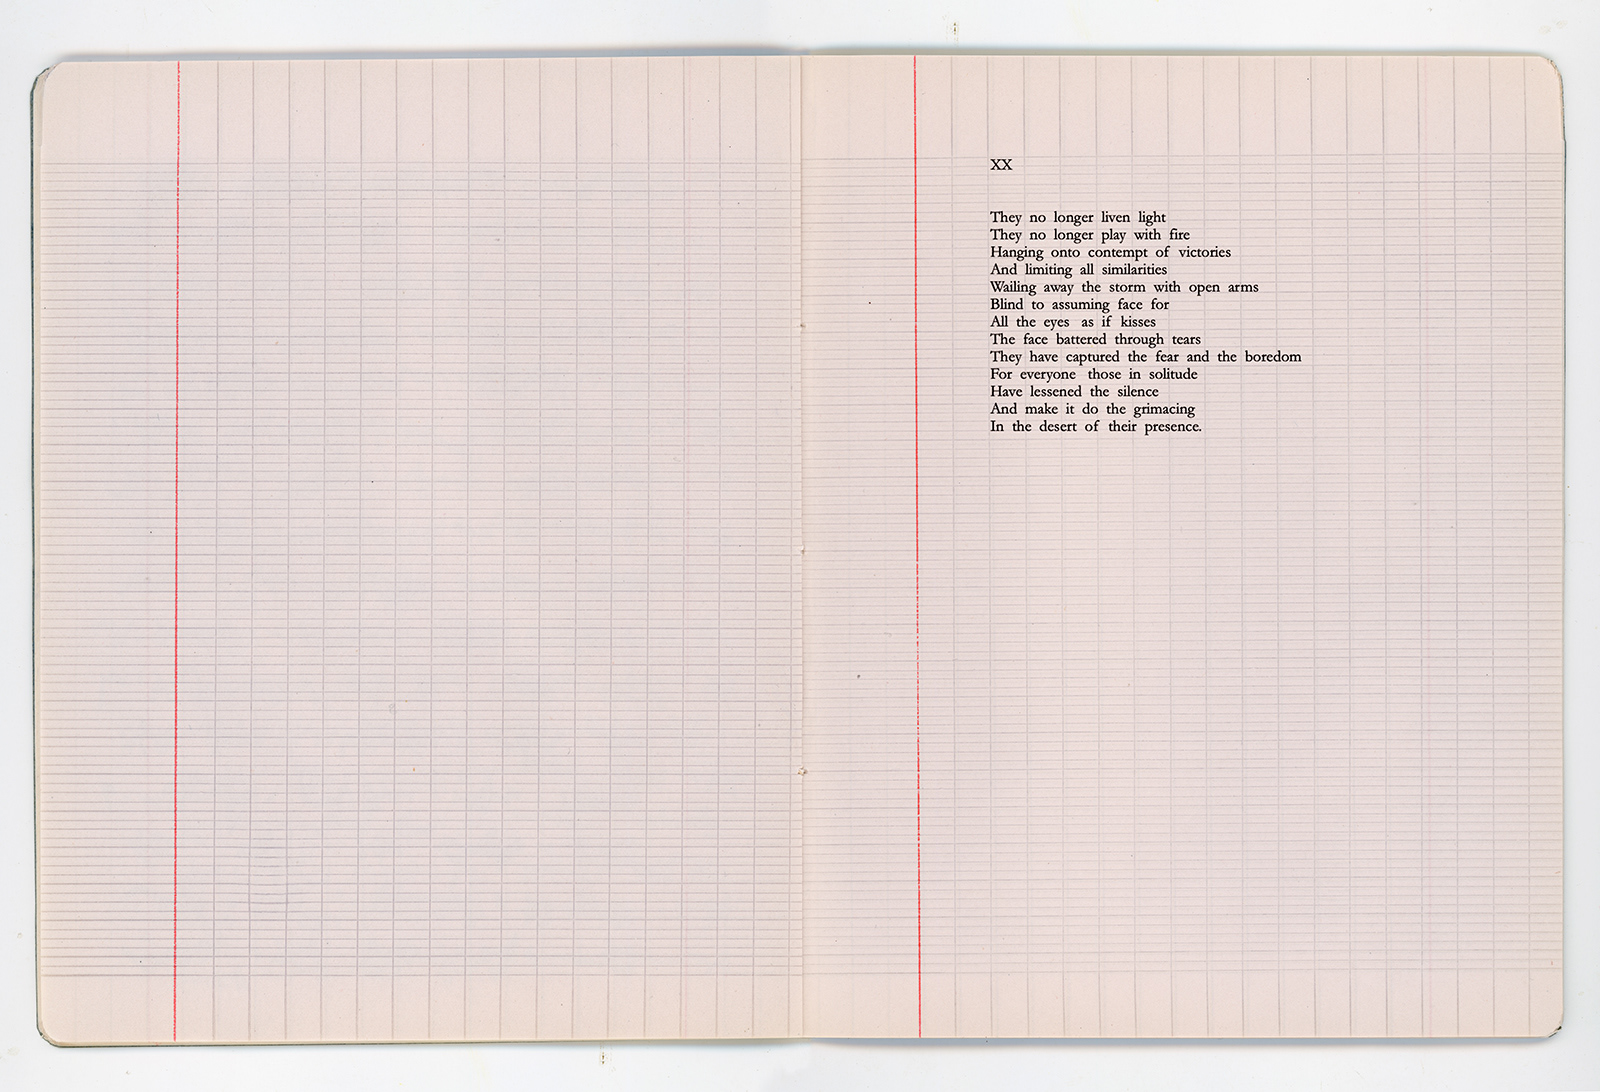 XX
They no longer liven light
They no longer play with fire
Hanging onto contempt of victories
And limiting all similarities
Wailing away the storm with open arms
Blind to assuming face for
All the eyes as if kisses
The face battered through tears
They have captured the fear and the boredom
For everyone those in solitude
Have lessened the silence
And make it do the grimacing
In the desert of their presence.